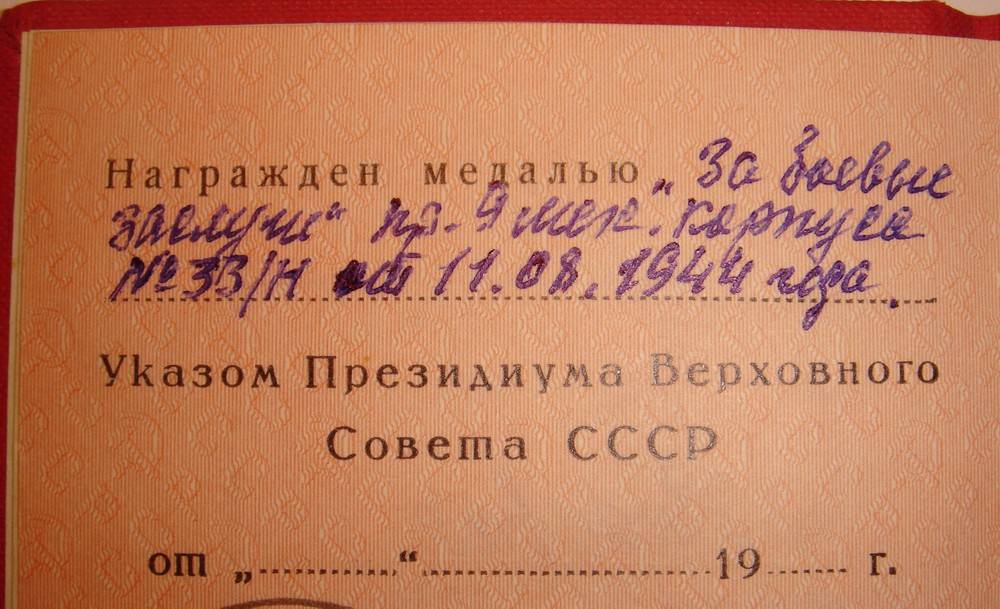 Награжден медалью „За боевые
заслуги“ пр. 9 мех. корпуса
№ 33/Н от 11.08.1944 года.
Указом Президиума Верховного
Совета СССР
от „..........“..............................19....... г.